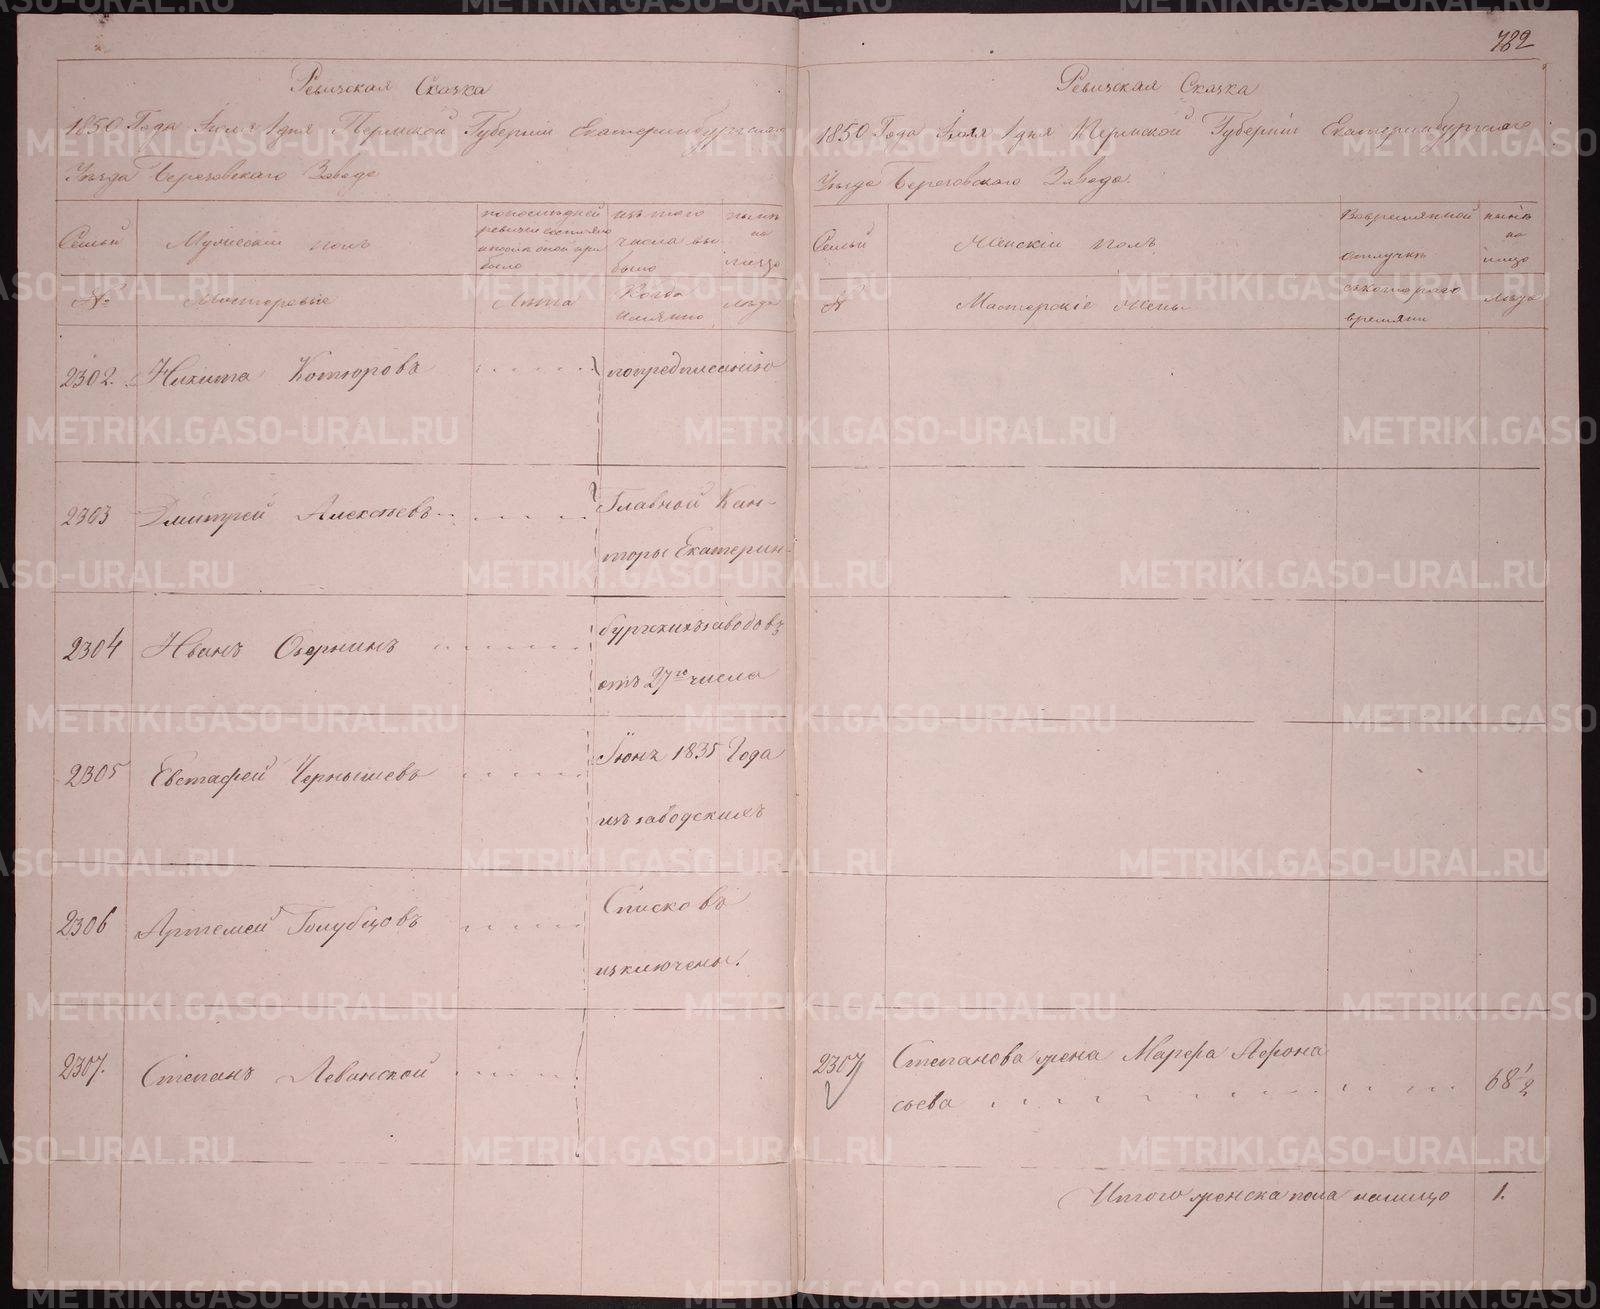 782
Ревизская Сказка
1850 Года Июля 1 дня Пермской Губернiи Екатеринбургскаго
Уѣзда Березовскаго Завода
Семьи
Мужескiй полъ
по последней
ревизiи состояло
и после оной при
было
изъ того
числа вы
было
нынѣ
на
лицо
№
Мастеровые
Лѣта
Когда
имянно
лѣта
2302. Никита Котюровъ
по предписанiю
2303 Дмитрей Алексѣевъ
Главной Кан-
торы Екатерин-
2304 Иванъ Озорнинъ
бургскихъ заводовъ
отъ 27го числа
2305 Евстафей Чернышевъ
Iюня 1835 Года
изъ заводскихъ
2306 Артемей Голубцовъ
Списковъ
изключены.
2307. Степанъ Леванской
Ревизская Сказка
1850 Года Июля 1 дня Пермской Губернiи Екатеринбургскаго
Уѣзда Березовскаго Завода.
Семьи
Женскiй полъ
Во временной
отлучкѣ
нынѣ
на
лицо
№
Мастерскiе Жены
с котораго
времяни
лѣта
2307 Степанова жена Марфа Афона
сьева 68 1/2
Итого женска пола налицо 1.
METRIKI.GASO-URAL.RU